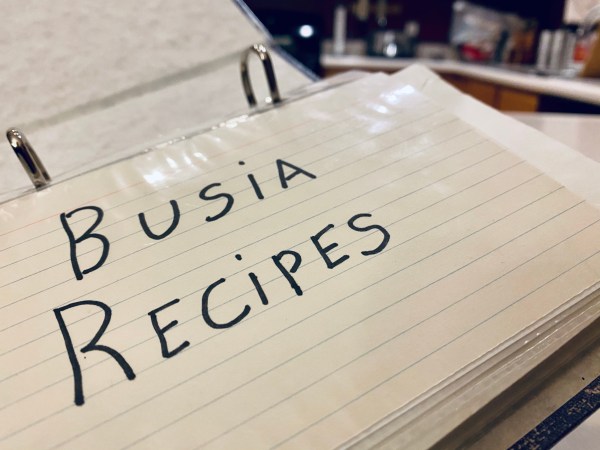 BUSiA
RECiPES